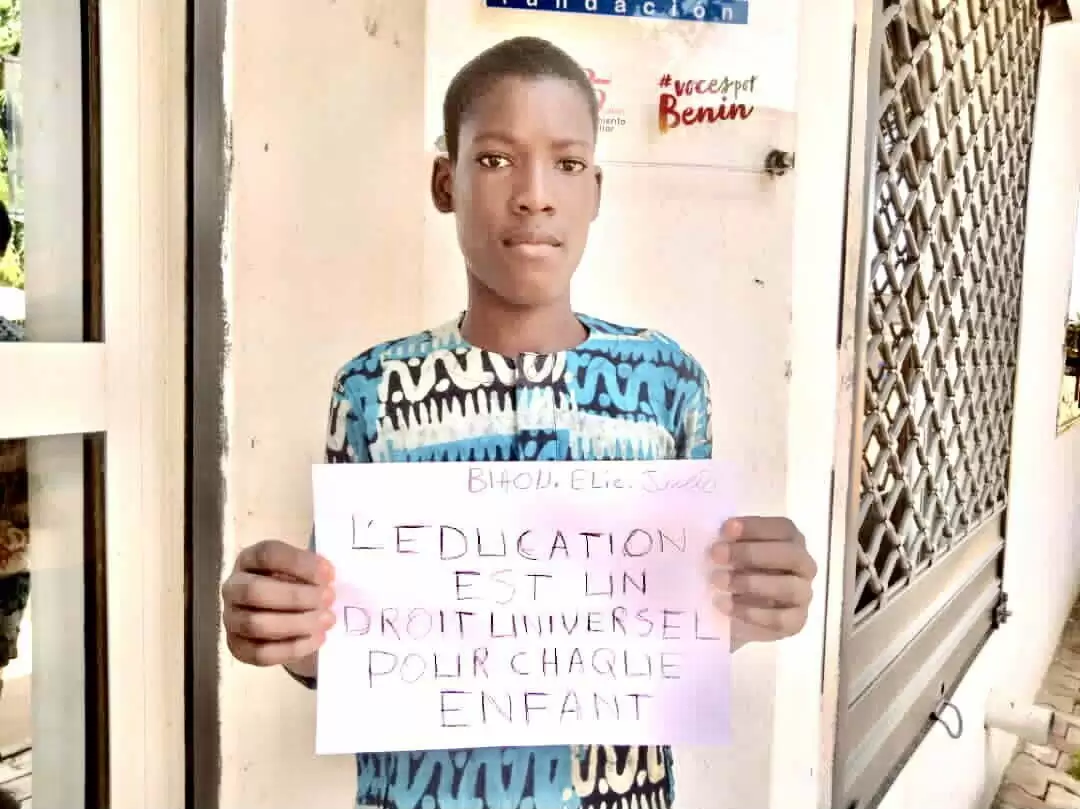 fundación
#vocespor
Benin
BIAOU. ELie.
L'EDUCATION
EST UN
DROIT UNIVERSEL
POUR CHAQUE
ENFANT